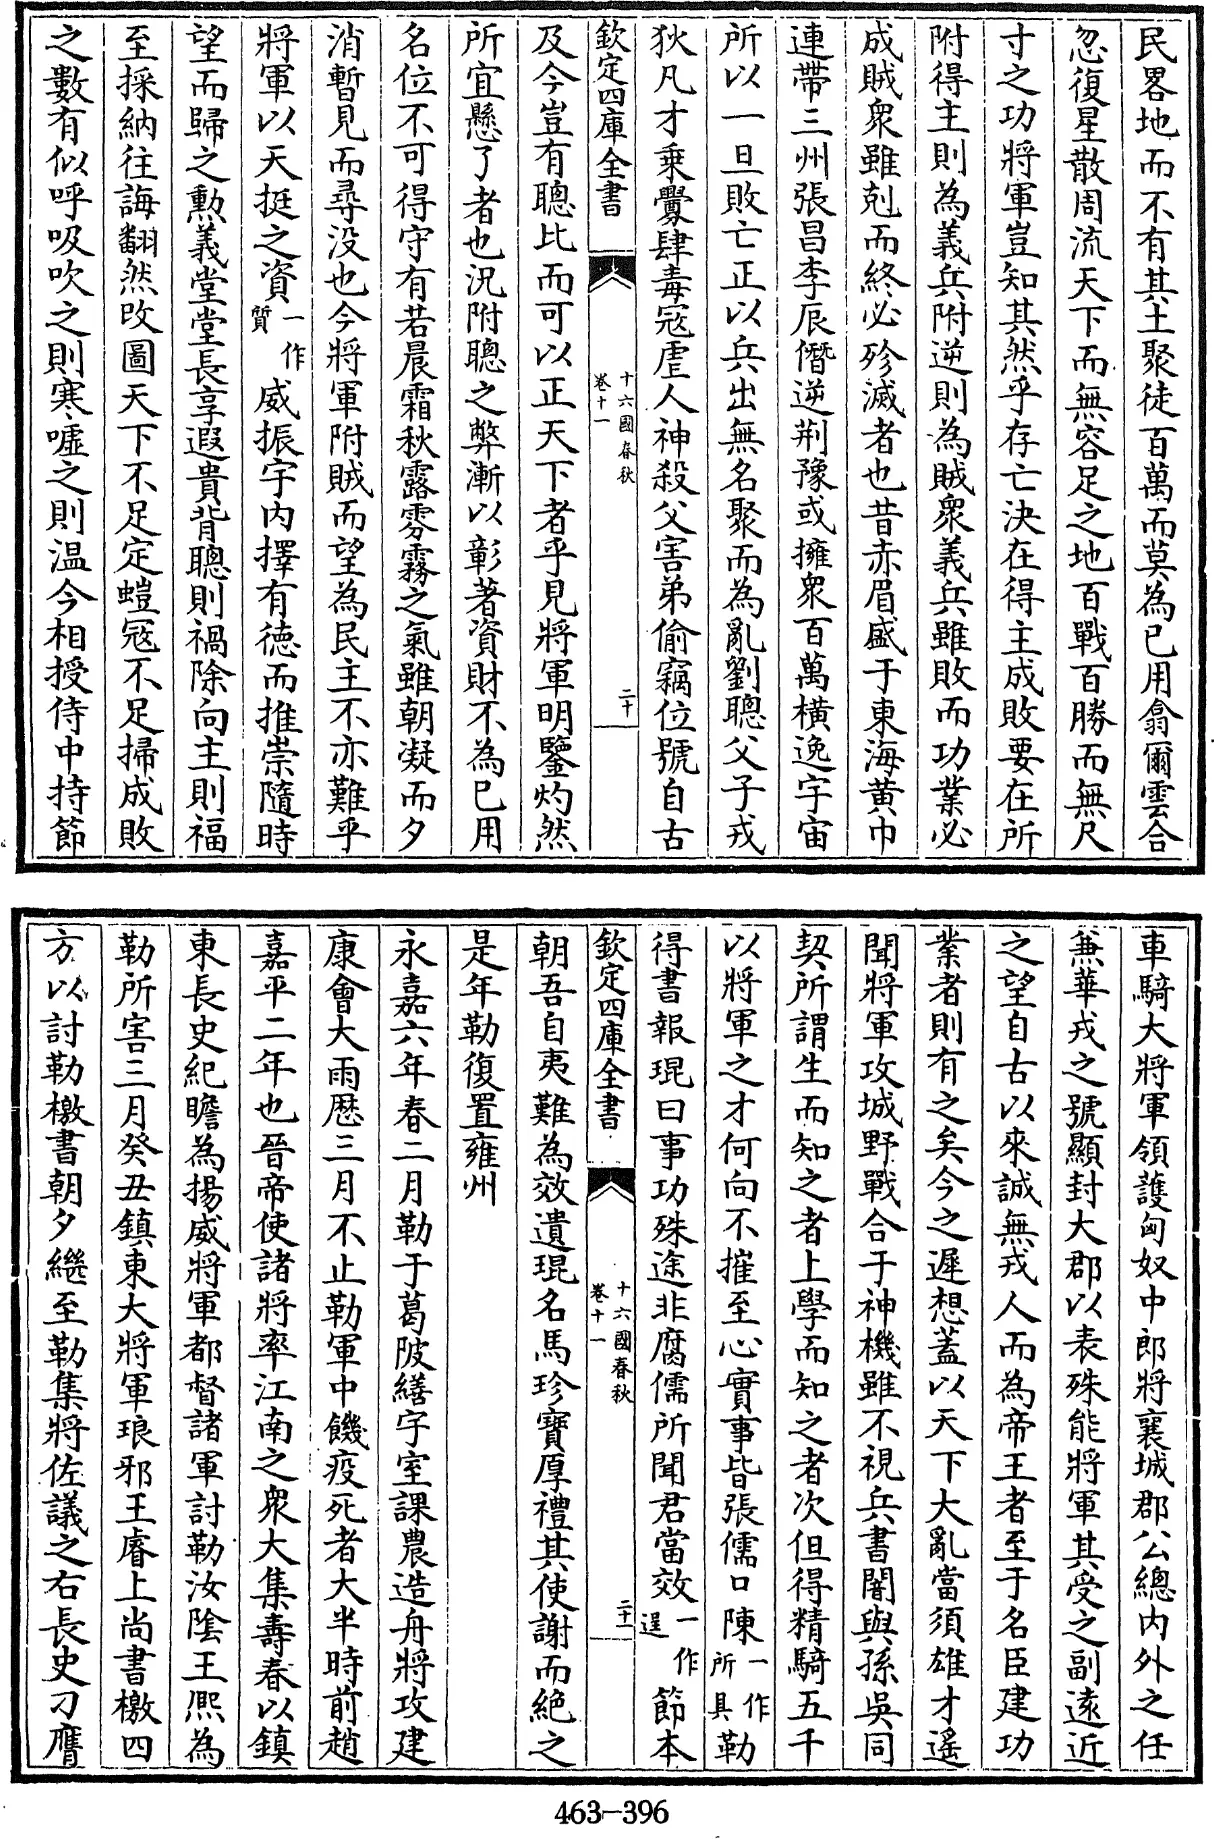 民畧地而不有其土聚徒百萬而莫為已用翕爾雲合
忽復星散周流天下而無容足之地百戰百勝而無尺
寸之功將軍豈知其然乎存亡決在得主成敗要在所
附得主則為義兵附逆則為賊衆義兵雖敗而功業必
成賊衆雖剋而終必殄滅者也昔赤眉盛于東海黄巾
連帶三州張昌李辰僭逆荆豫或擁衆百萬横逸宇宙
所以一旦敗亡正以兵出無名聚而為亂劉聰父子戎
狄凡才乗釁肆毒寇虐人神殺父害弟偷竊位號自古
欽定四庫全書
十六國春秋
卷十一
二十
及今豈有聰比而可以正天下者乎見將軍明鑒灼然
所宜懸了者也況附聰之弊漸以彰著資財不為已用
名位不可得守有若晨霜秋露雰霧之氣雖朝凝而夕
消暫見而尋没也今將軍附賊而望為民主不亦難乎
將軍以天挺之資一作質威振宇内擇有德而推崇隨時
望而歸之勲義堂堂長享遐貴背聰則禍除向主則福
至採納往誨翻然改圖天下不足定螘寇不足掃成敗
之數有似呼吸吹之則寒噓之則温今相授侍中持節
車騎大將軍領護匈奴中郎將襄城郡公總内外之任
兼華戎之號顯封大郡以表殊能將軍其受之副遠近
之望自古以來誠無戎人而為帝王者至于名臣建功
業者則有之矣今之遲想蓋以天下大亂當須雄才遥
聞將軍攻城野戰合于神機雖不視兵書闇與孫吳同
契所謂生而知之者上學而知之者次但得精騎五千
以將軍之才何向不摧至心實事皆張儒口陳一作所具勒
得書報琨曰事功殊途非腐儒所聞君當效一作逞節本
欽定四庫全書
十六國春秋
卷十一
二十一
朝吾自夷難為效遺琨名馬珍寶厚禮其使謝而絶之
是年勒復置雍州
永嘉六年春二月勒于葛陂繕宇室課農造舟將攻建
康會大雨歴三月不止勒軍中饑疫死者大半時前趙
嘉平二年也晉帝使諸將率江南之衆大集壽春以鎮
東長史紀瞻為揚威將軍都督諸軍討勒汝隂王熙為
勒所害三月癸丑鎮東大將軍琅邪王睿上尚書檄四
方以討勒檄書朝夕繼至勒集將佐議之右長史刁膺
463-396